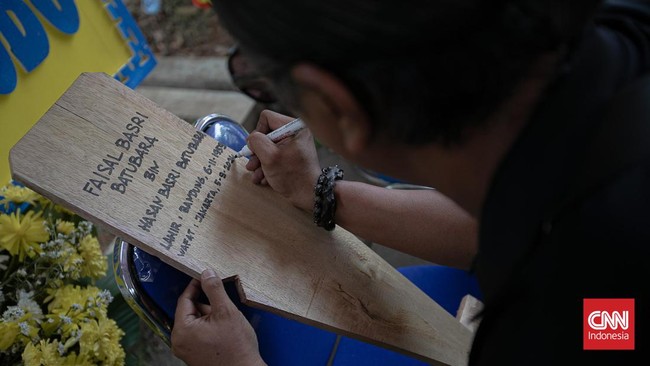 FAISAL BASRI
BATUBARA
BIN
HASAN BASRI BATUBARA
LAHIR : BANDUNG, 6-11-1959
WAFAT : JAKARTA, 5-9-20
CNN
Indonesia